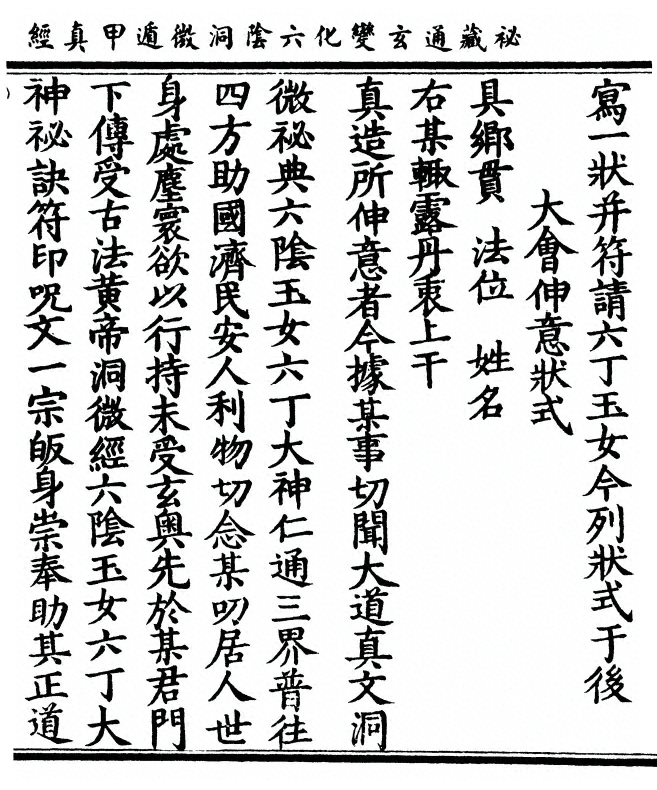 祕藏通玄變化六陰洞微遁甲真經
寫一狀并符請六丁玉女今列狀式于後
大會伸意狀式
具鄉貫 法位 姓名
右某輙露丹衷上干
真造所伸意者今據某事切聞大道真文洞
微祕典六陰玉女六丁大神仁通三界普往
四方助國濟民安人利物切念某叨居人世
身處塵寰欲以行持未受玄奥先於某君門
下傳受古法黄帝洞微經六陰玉女六丁大
神祕訣符印呪文一宗皈身崇奉助其正道